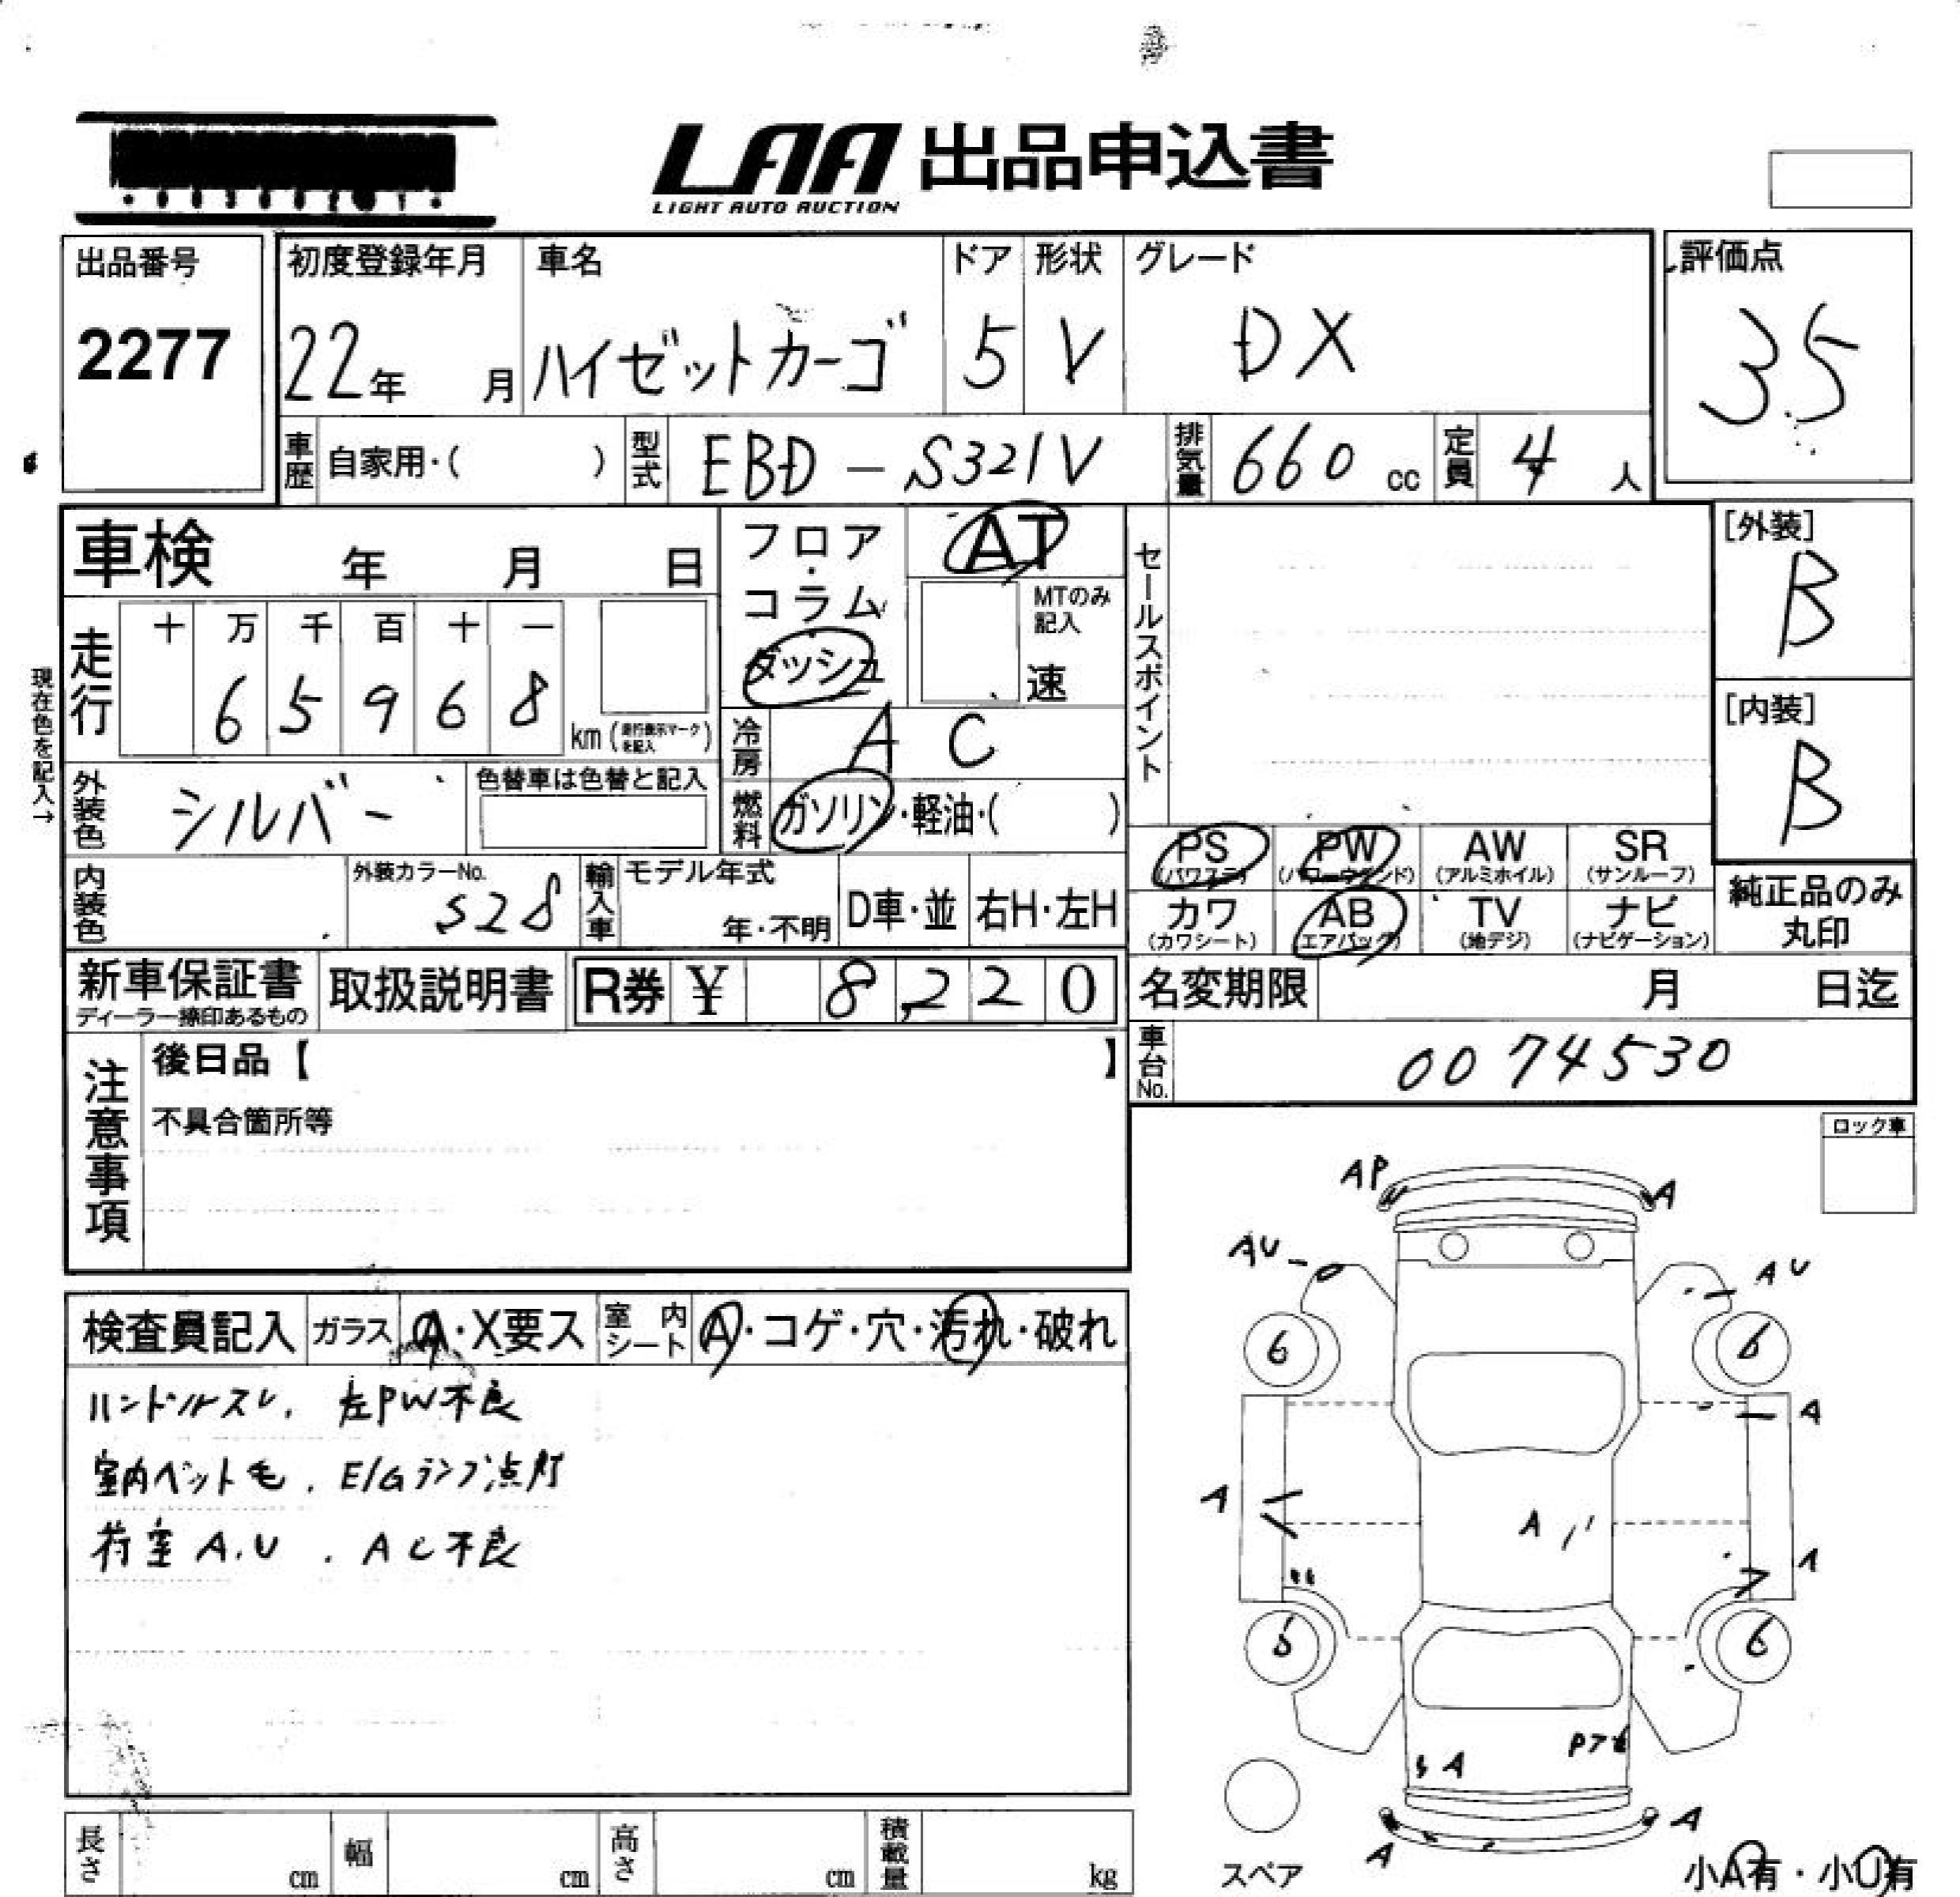 LAA 出品申込書
LIGHT AUTO AUCTION
出品番号
2277
初度登録年月
22年 月
車名
ハイゼットカーゴ
ドア
5
形状
V
グレード
DX
評価点
3.5
車歴 自家用・( )
型式 EBD - S321V
排気量 660 cc
定員 4 人
車検 年 月 日
フロア・コラム・ダッシュ
AT
MTのみ記入
速
セールスポイント
[外装]
B
[内装]
B
走行
十 万 千 百 十 一
6 5 9 6 8
km (走行表示マークを記入)
現在色を記入→
冷房 A C
外装色 シルバー
色替車は色替と記入
燃料 ガソリン・軽油・( )
PS (パワステ)
PW (パワーウインド)
AW (アルミホイル)
SR (サンルーフ)
カワ (カワシート)
AB (エアバッグ)
TV (地デジ)
ナビ (ナビゲーション)
純正品のみ丸印
内装色
外装カラーNo.
S28
輸入車
モデル年式
年・不明
D車・並
右H・左H
新車保証書
ディーラー捺印あるもの
取扱説明書
R券 ¥ 8,220
名変期限 月 日迄
車台No. 0074530
注意事項
後日品【 】
不具合箇所等
ロック車
検査員記入
ガラス A・X要ス
室内シート A・コゲ・穴・汚れ・破れ
ハンドルスレ. 左PW不良
室内ペット毛. E/Gランプ点灯
荷室 A.U . AC不良
AP
A
AU
AU
6
6
A
A
A
6
A
A
A
小A有・小U有
スペア
長さ cm
幅 cm
高さ cm
積載量 kg